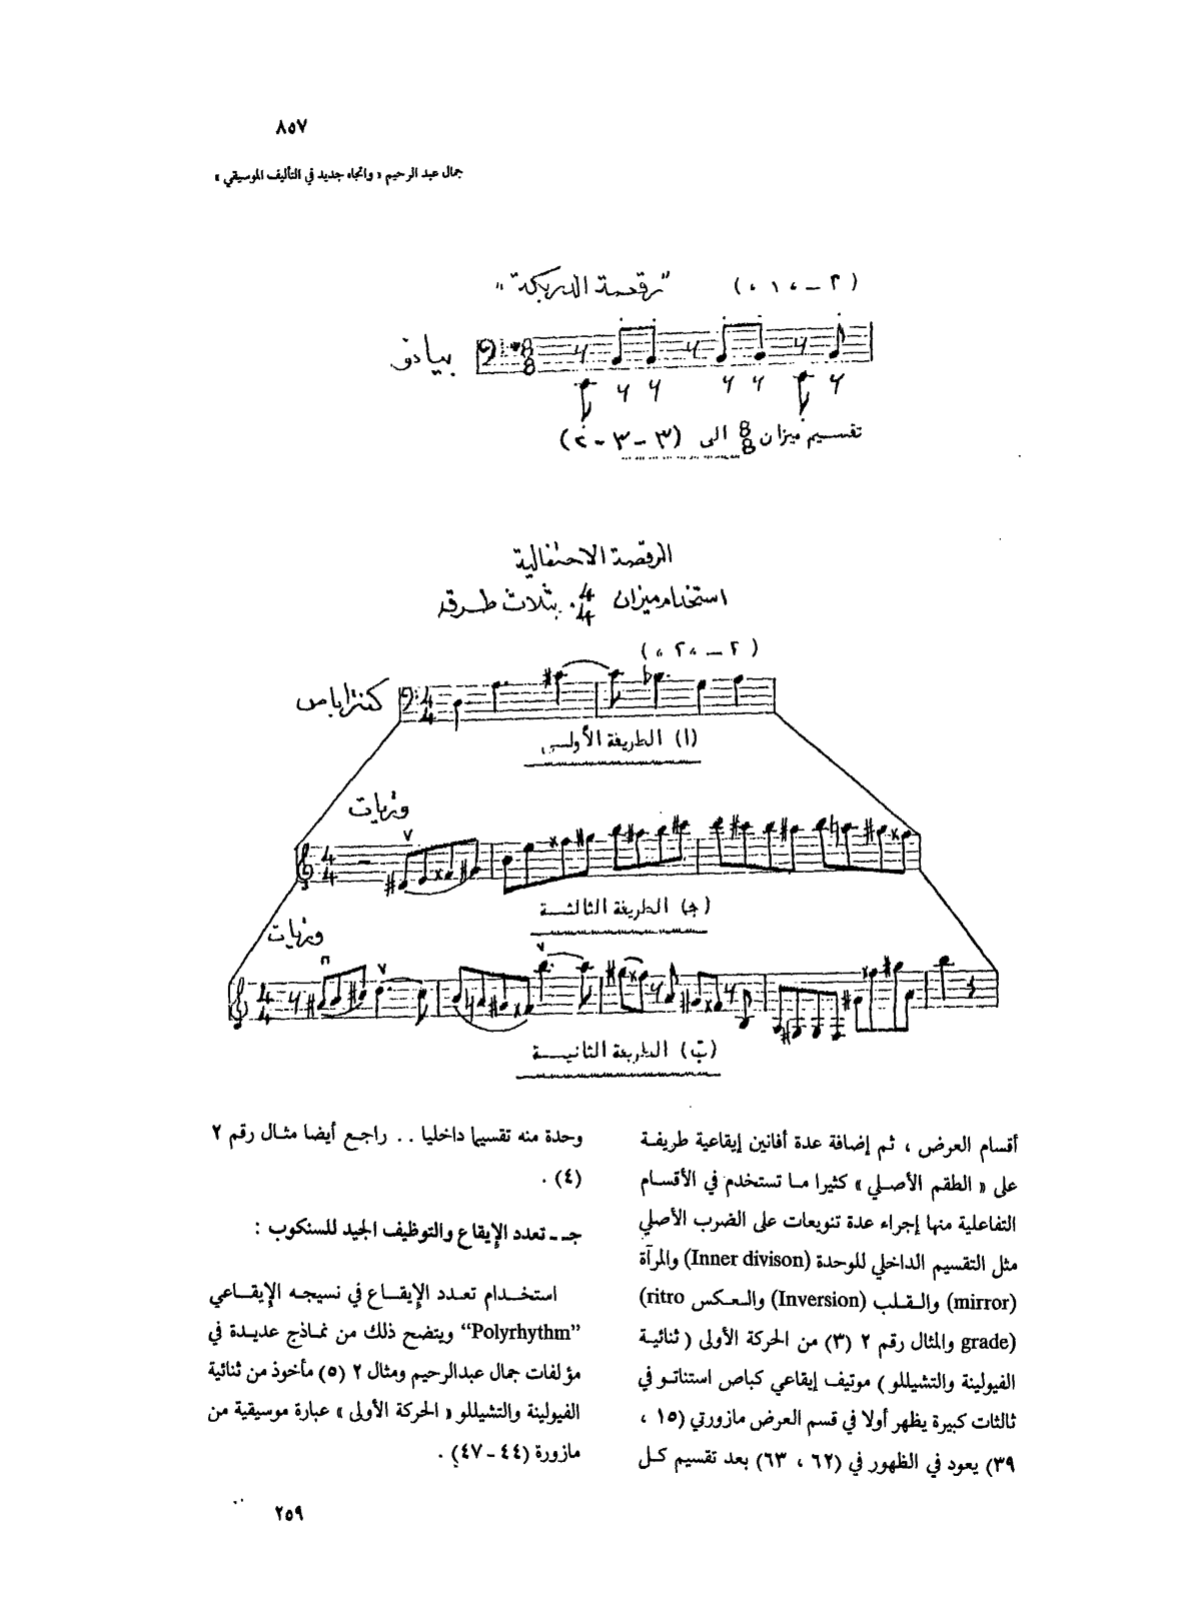 ٨٥٧
جمال عبد الرحيم « واتجاه جديد في التأليف الموسيقي »
(٢ – ،١ ،) "رقصة الدربكة"
بيانو
8
8
تقسيم ميزان 8/8 الى (٣-٣-٢)
الرقصة الاحتفالية
استخدام ميزان 4/4 بثلاث طرق
(٢ – ،٢ ،)
كنتراباص
4
4
(ا) الطريقة الأولى
وتريات
4
4
(جـ) الطريقة الثالثة
وتريات
4
4
(ب) الطريقة الثانية
أقسام العرض ، ثم إضافة عدة أفانين إيقاعية طريفة
على « الطقم الأصلي » كثيرا ما تستخدم في الأقسام
التفاعلية منها إجراء عدة تنويعات على الضرب الأصلي
مثل التقسيم الداخلي للوحدة (Inner divison) والمرآة
(mirror) والقلب (Inversion) والعكس (ritro
grade) والمثال رقم ٢ (٣) من الحركة الأولى ( ثنائية
الفيولينة والتشيللو ) موتيف إيقاعي كباص استناتو في
ثالثات كبيرة يظهر أولا في قسم العرض مازورتي (١٥ ،
٣٩) يعود في الظهور في (٦٢ ، ٦٣) بعد تقسيم كل
وحدة منه تقسيما داخليا . . راجع أيضا مثال رقم ٢
(٤) .
جـ ـ تعدد الإيقاع والتوظيف الجيد للسنكوب :
استخدام تعدد الإيقاع في نسيجه الإيقاعي
“Polyrhythm” ويتضح ذلك من نماذج عديدة في
مؤلفات جمال عبدالرحيم ومثال ٢ (٥) مأخوذ من ثنائية
الفيولينة والتشيللو « الحركة الأولى » عبارة موسيقية من
مازورة (٤٤ - ٤٧) .
٢٥٩